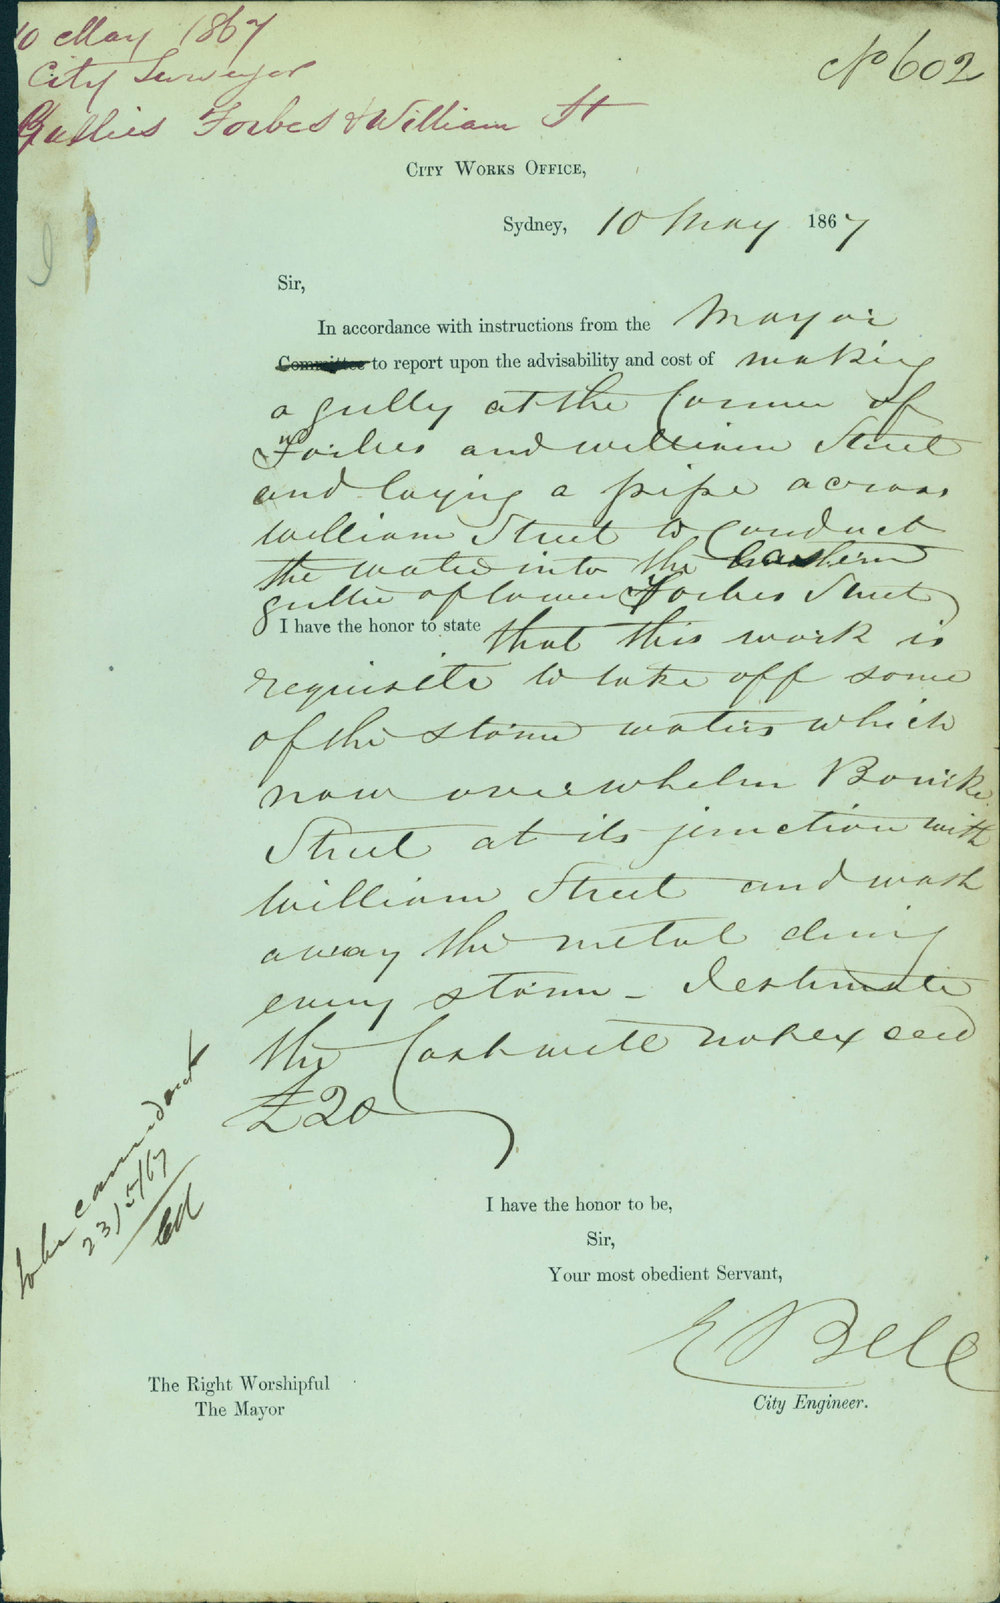 10 May 1867
City Surveyor
Gullies Forbes & William St
No 602
City Works Office,
Sydney, 10 May 1867
Sir,
In accordance with instructions from the Mayor
Committee to report upon the advisability and cost of making
a gully at the Corner of
Forbes and William Street
and laying a pipe across
William Street to Conduct
the water into the Eastern
gutter of lower Forbes Street
I have the honor to state that this work is
requisite to take off some
of the storm waters which
now overwhelm Bourke
Street at its junction with
William Street and wash
away the metal during
every storm - I estimate
the Cost will not exceed
£20
23/5/67
I have the honor to be,
Sir,
Your most obedient Servant,
E Bell
City Engineer.
The Right Worshipful
The Mayor